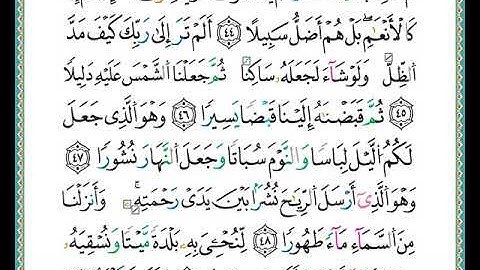 كَالۡأَنۡعَٰمِ بَلۡ هُمۡ أَضَلُّ سَبِيلًا ٤٤ أَلَمۡ تَرَ إِلَىٰ رَبِّكَ كَيۡفَ مَدَّ
ٱلظِّلَّ وَلَوۡ شَآءَ لَجَعَلَهُۥ سَاكِنٗا ثُمَّ جَعَلۡنَا ٱلشَّمۡسَ عَلَيۡهِ دَلِيلٗا
٤٥ ثُمَّ قَبَضۡنَٰهُ إِلَيۡنَا قَبۡضٗا يَسِيرٗا ٤٦ وَهُوَ ٱلَّذِي جَعَلَ
لَكُمُ ٱلَّيۡلَ لِبَاسٗا وَٱلنَّوۡمَ سُبَاتٗا وَجَعَلَ ٱلنَّهَارَ نُشُورٗا ٤٧
وَهُوَ ٱلَّذِيٓ أَرۡسَلَ ٱلرِّيَٰحَ نُشُرَۢا بَيۡنَ يَدَيۡ رَحۡمَتِهِۦۚ وَأَنزَلۡنَا
مِنَ ٱلسَّمَآءِ مَآءٗ طَهُورٗا ٤٨ لِّنُحۡـِۧيَ بِهِۦ بَلۡدَةٗ مَّيۡتٗا وَنُسۡقِيَهُۥ